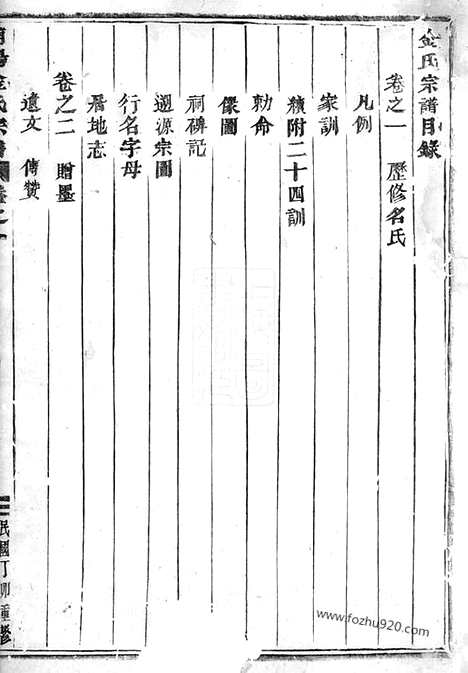 金氏宗譜目錄
卷之一 歷修名氏
凡例
家訓
續附二十四訓
勅命
像圖
祠碑記
遡源宗圖
行名字母
居地志
卷之二 贈墨
遺文 傳贊
氏宗譜 卷之一 民國丁卯重修
www.fozhu920.com